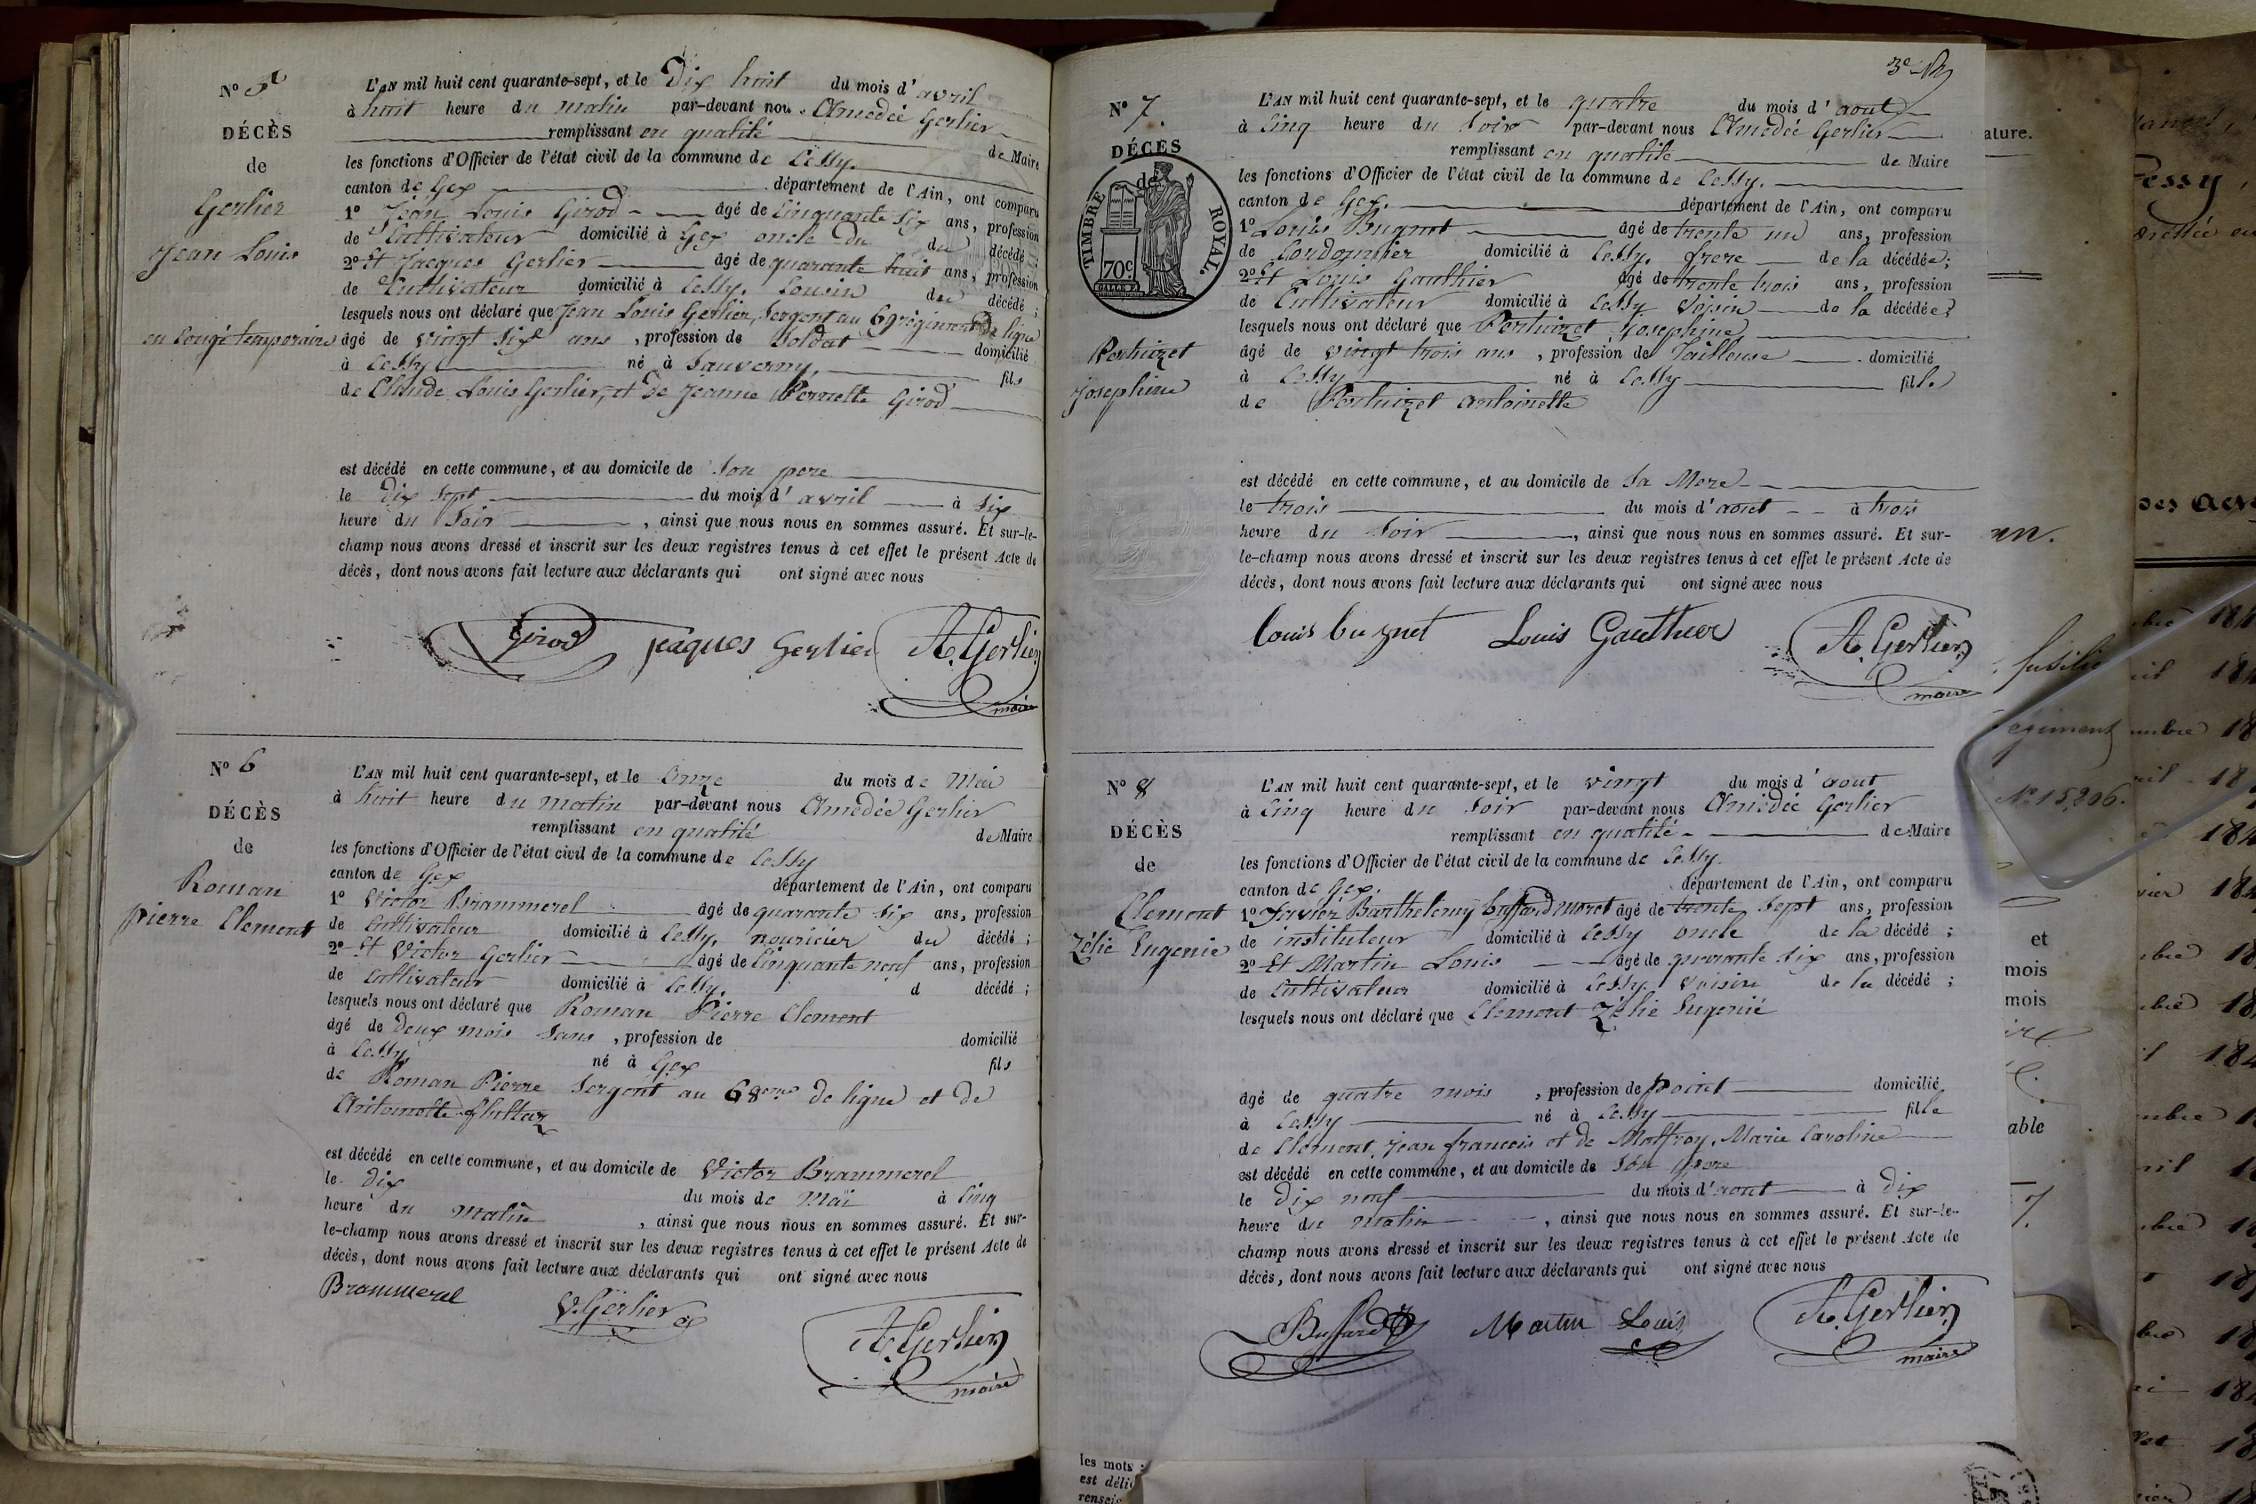 N° 5
DÉCÈS
de
Gerlier
Jean Louis
en congé temporaire
L'AN mil huit cent quarante-sept, et le Dix huit du mois d'avril
à huit heure du matin par-devant nous Amédée Gerlier
remplissant en qualité de Maire
les fonctions d'Officier de l'état civil de la commune de Cessy.
canton de Gex département de l'Ain, ont comparu
1° Jean Louis Girod âgé de cinquante six ans, profession
de Cultivateur domicilié à Gex oncle du décédé ;
2° Et Jacques Gerlier âgé de quarante huit ans, profession
de Cultivateur domicilié à Cessy. Cousin du décédé ;
lesquels nous ont déclaré que Jean Louis Gerlier, Sergent au 69 régiment de ligne
âgé de vingt six ans, profession de Soldat domicilié
à Cessy né à Sauverny, fils
de Claude Louis Gerlier, et de Jeanne Pernette Girod
est décédé en cette commune, et au domicile de Son pere
le Dix sept du mois d'avril à Six
heure du Soir, ainsi que nous nous en sommes assuré. Et sur-le-
champ nous avons dressé et inscrit sur les deux registres tenus à cet effet le présent Acte de
décès, dont nous avons fait lecture aux déclarants qui ont signé avec nous
Girod Jeaques Gerlier A. Gerlier
maire
N° 6
DÉCÈS
de
Roman
pierre Clement
L'AN mil huit cent quarante-sept, et le Onze du mois de Mai
à huit heure du matin par-devant nous Amédée Gerlier
remplissant en qualité de Maire
les fonctions d'Officier de l'état civil de la commune de Cessy
canton de Gex département de l'Ain, ont comparu
1° Victor Brammerel âgé de quarante Six ans, profession
de Cultivateur domicilié à Cessy, nouricier du décédé ;
2° Et Victor Gerlier âgé de Cinquante neuf ans, profession
de Cultivateur domicilié à Cessy. d décédé ;
lesquels nous ont déclaré que Roman Pierre Clement
âgé de Deux mois Sans, profession de domicilié
à Cessy né à Gex fils
de Roman Pierre Sergent au 68eme de ligne et de
Antoinette
est décédé en cette commune, et au domicile de Victor Brammerel
le Dix du mois de Mai à Cinq
heure du matin, ainsi que nous nous en sommes assuré. Et sur-
le-champ nous avons dressé et inscrit sur les deux registres tenus à cet effet le présent Acte de
décès, dont nous avons fait lecture aux déclarants qui ont signé avec nous
Brammerel V. Gerlier A. Gerlier
maire
N° 7.
DÉCÈS
de
TIMBRE ROYAL.
70c
Perhuizet
Josephine
L'AN mil huit cent quarante-sept, et le quatre du mois d'aout
à Cinq heure du Soir par-devant nous Amédée Gerlier
remplissant en qualité de Maire
les fonctions d'Officier de l'état civil de la commune de Cessy.
canton de Gex. département de l'Ain, ont comparu
1° Louis Bugnet âgé de trente un ans, profession
de Cordonnier domicilié à Cessy. frere de la décédée ;
2° Et Louis Gauthier âgé de trente trois ans, profession
de Cultivateur domicilié à Cessy Voisin de la décédée ;
lesquels nous ont déclaré que Perhuizet Josephine
âgé de vingt trois ans, profession de Tailleuse domicilié
à Cessy né à Cessy fille
de Perhuizet Antoinette
est décédé en cette commune, et au domicile de Sa Mere
le trois du mois d'aout à trois
heure du Soir, ainsi que nous nous en sommes assuré. Et sur-
le-champ nous avons dressé et inscrit sur les deux registres tenus à cet effet le présent Acte de
décès, dont nous avons fait lecture aux déclarants qui ont signé avec nous
Louis bugnet Louis Gauthier A. Gerlier
maire
N° 8
DÉCÈS
de
Clement
Zélie Eugenie
L'AN mil huit cent quarante-sept, et le vingt du mois d'aout
à Cinq heure du Soir par-devant nous Amédée Gerlier
remplissant en qualité de Maire
les fonctions d'Officier de l'état civil de la commune de Cessy.
canton de Gex. département de l'Ain, ont comparu
1° Xavier Barthelemy buffard moret âgé de trente Sept ans, profession
de instituteur domicilié à Cessy oncle de la décédé ;
2° Et Martin Louis âgé de quarante Six ans, profession
de Cultivateur domicilié à Cessy Voisin de la décédé ;
lesquels nous ont déclaré que Clement Zélie Eugenie
âgé de quatre mois, profession de point domicilié
à Cessy né à Cessy fille
de Clement, Jean francois et de Moffray, Marie Caroline
est décédé en cette commune, et au domicile de Son pere
le Dix neuf du mois d'aout à Dix
heure du matin, ainsi que nous nous en sommes assuré. Et sur-le-
champ nous avons dressé et inscrit sur les deux registres tenus à cet effet le présent Acte de
décès, dont nous avons fait lecture aux déclarants qui ont signé avec nous
Buffard Martin Louis A. Gerlier
maire
ature.
Fessy
fusilie
N° 15,206.
et
mois
mois
able
les mots
est déli
rensei